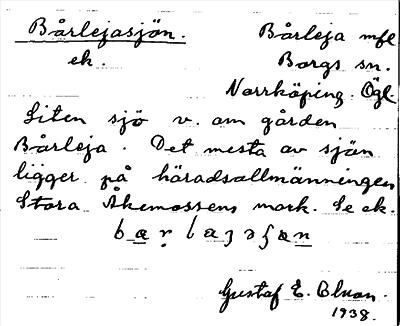 Bårlejasjön. Bårleja mfl
ek. Borgs sn.
Norrköping. Ögl.
Liten sjö v. om gården
Bårleja. Det mesta av sjön
ligger på häradsallmänningen
Stora Åkemossens mark. Se ek.
Gustaf E.
1938.